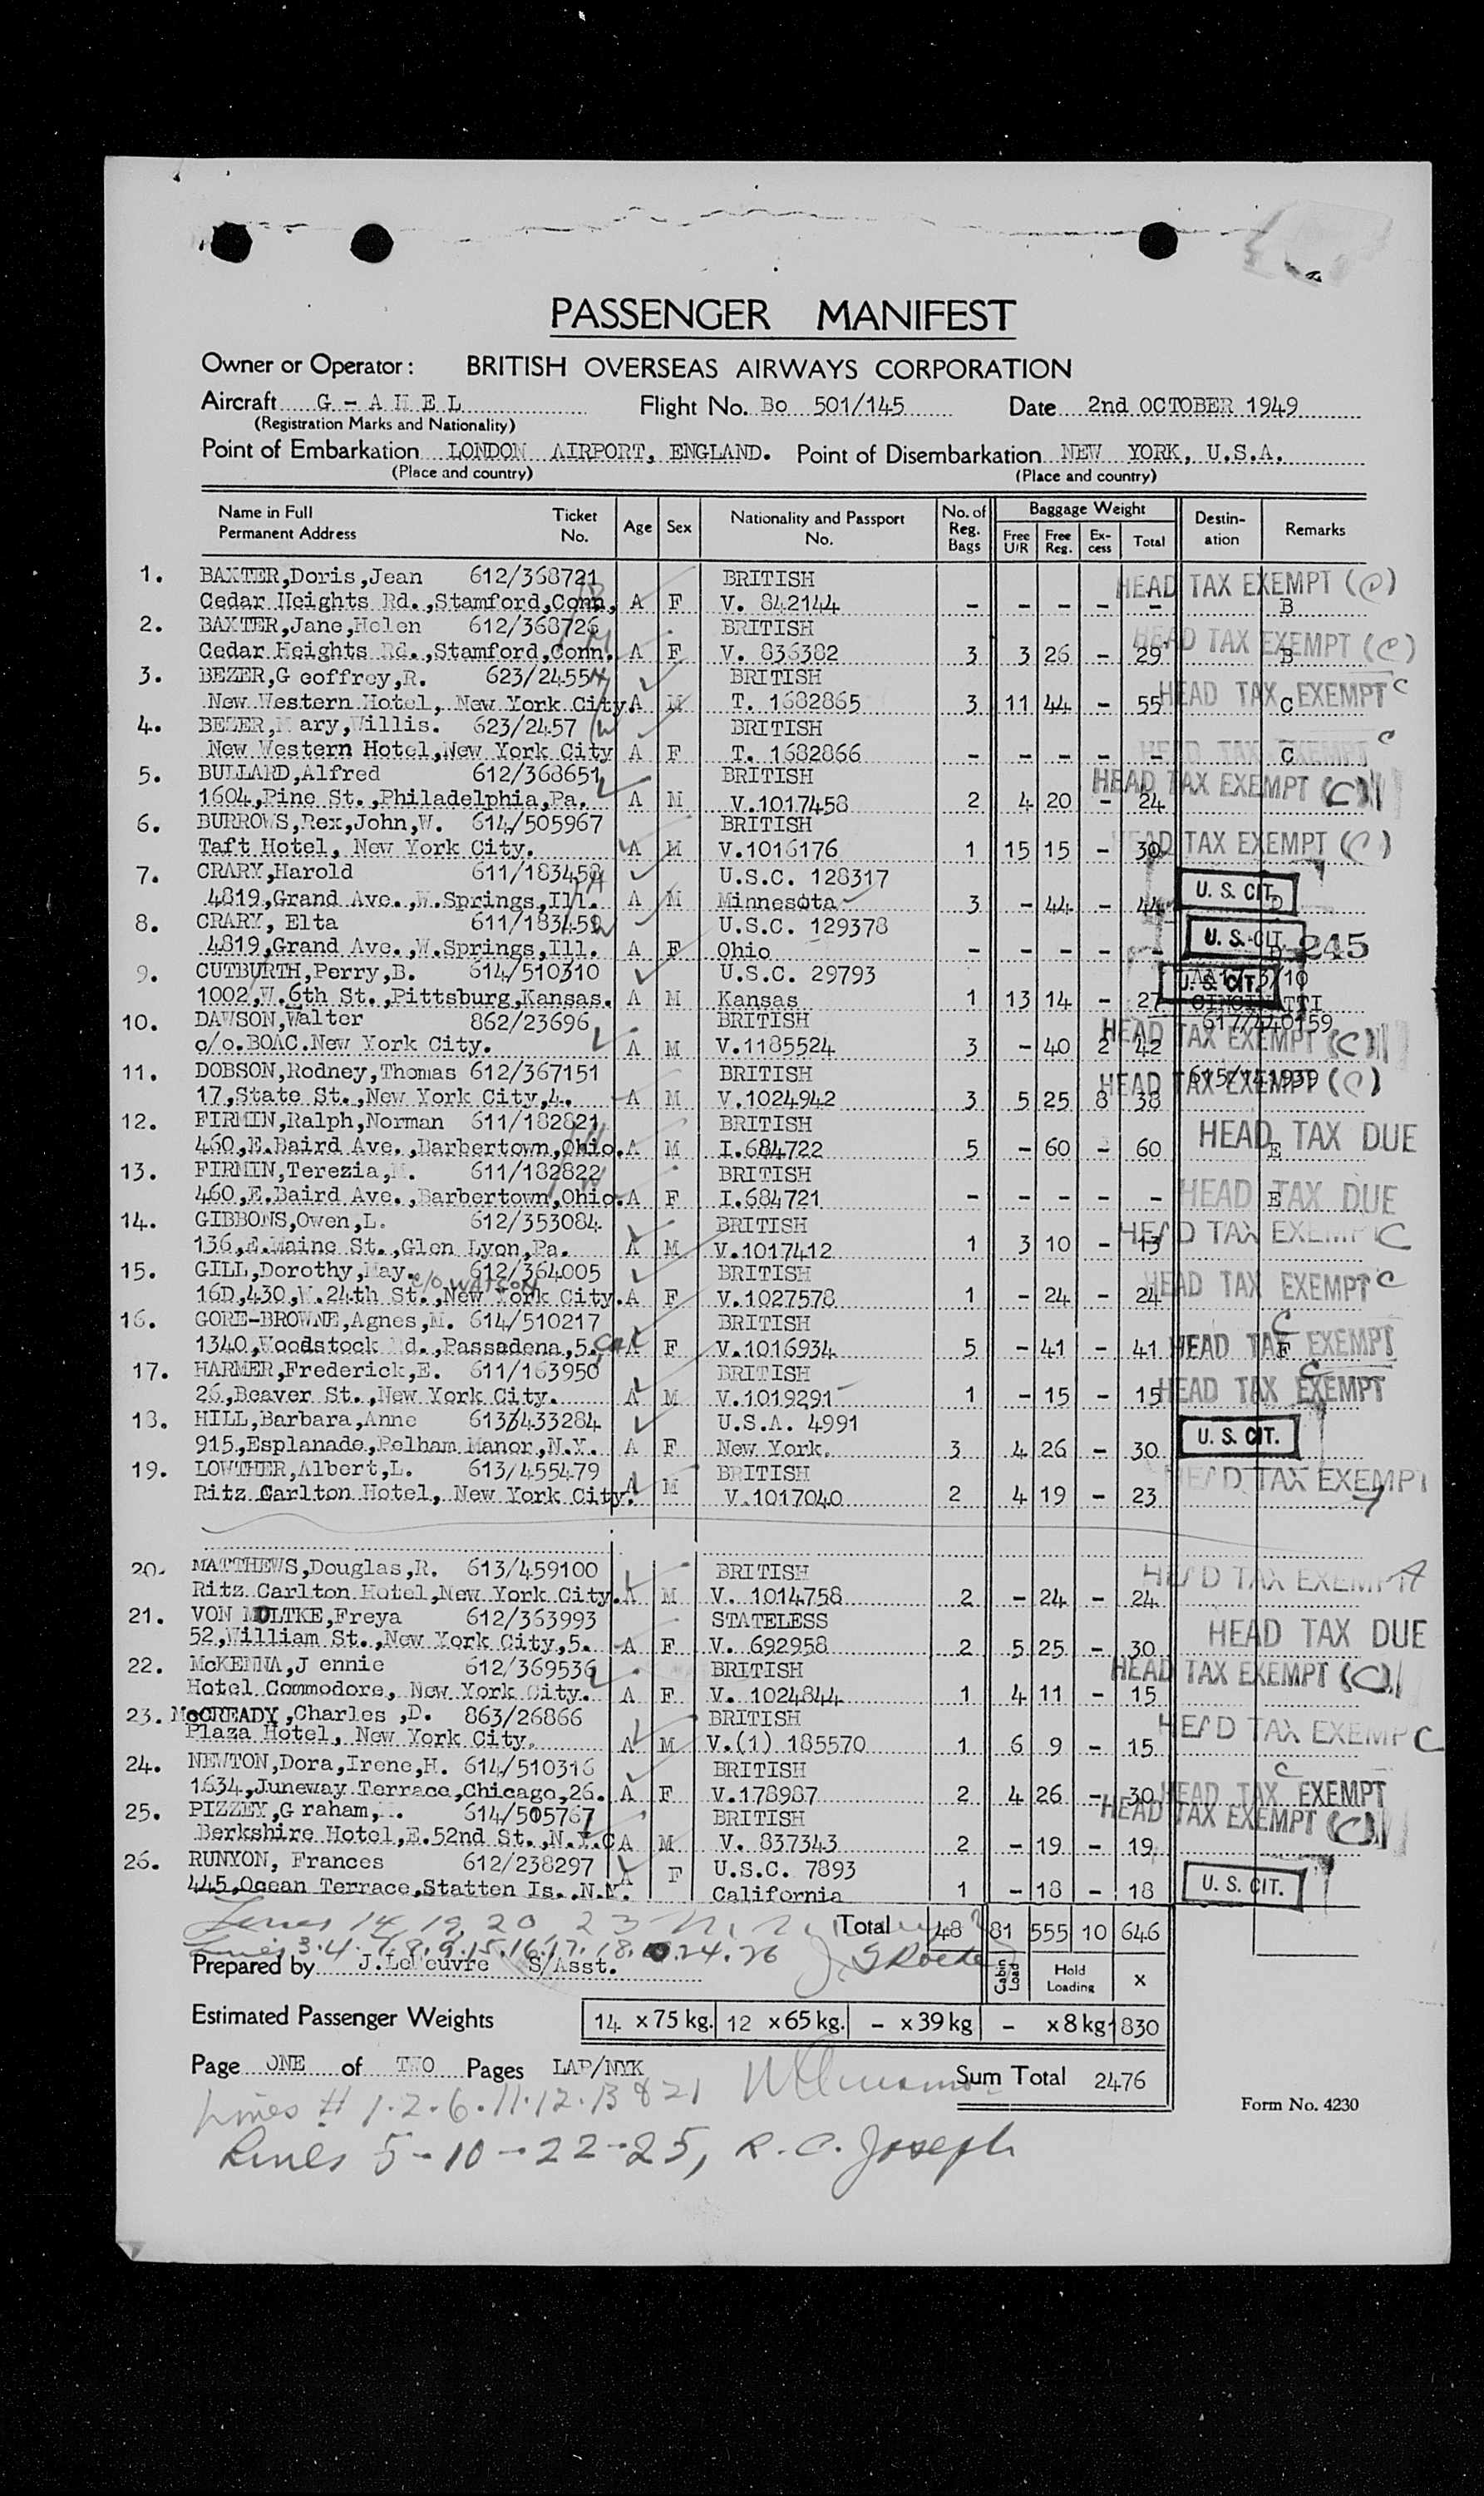 PASSENGER MANIFEST
Owner or Operator: BRITISH OVERSEAS AIRWAYS CORPORATION
Aircraft G - A H E L Flight No. Bo 501/145 Date 2nd OCTOBER 1949
(Registration Marks and Nationality)
Point of Embarkation LONDON AIRPORT, ENGLAND. Point of Disembarkation NEW YORK, U.S.A.
(Place and country) (Place and country)
Name in Full Permanent Address Ticket No. Age Sex Nationality and Passport No. No. of Reg. Bags Baggage Weight Free U/R Free Reg. Ex-cess Total Destin-ation Remarks
1. BAXTER,Doris,Jean 612/368721 BRITISH HEAD TAX EXEMPT (C)
Cedar Heights Rd.,Stamford,Conn, A F V. 842144 - - - - - B
2. BAXTER,Jane,Helen 612/368726 BRITISH HEAD TAX EXEMPT (C)
Cedar Heights Rd.,Stamford,Conn. A F V. 836382 3 3 26 - 29 B
3. BEZER,G eoffrey,R. 623/2455 BRITISH HEAD TAX EXEMPT C
New Western Hotel, New York City. A M T. 1682865 3 11 44 - 55 C
4. BEZER,M ary,Willis. 623/2457 BRITISH HEAD TAX EXEMPT C
New Western Hotel,New York City A F T. 1682866 - - - - - C
5. BULLARD,Alfred 612/368651 BRITISH HEAD TAX EXEMPT (C)
1604,Pine St.,Philadelphia,Pa. A M V.1017458 2 4 20 - 24
6. BURROWS,Rex,John,W. 614/505967 BRITISH HEAD TAX EXEMPT (C)
Taft Hotel, New York City. A M V.1016176 1 15 15 - 30
7. CRARY,Harold 611/183458 U.S.C. 128317 U. S. CIT.
4819,Grand Ave.,W.Springs,Ill. A M Minnesota 3 - 44 - 44 D
8. CRARY, Elta 611/183459 U.S.C. 129378 U. S. CIT. 245
4819,Grand Ave.,W.Springs,Ill. A F Ohio - - - - - D
9. CUTBURTH,Perry,B. 614/510310 U.S.C. 29793 U. S. CIT.
1002,W.6th St.,Pittsburg,Kansas. A M Kansas 1 13 14 - 27 CINCINATTI
10. DAWSON,Walter 862/23696 BRITISH 617/440159 HEAD TAX EXEMPT (C)
c/o.BOAC.New York City. A M V.1185524 3 - 40 2 42
11. DOBSON,Rodney,Thomas 612/367151 BRITISH HEAD TAX EXEMPT (C)
17,State St.,New York City,4. A M V.1024942 3 5 25 8 38
12. FIRMIN,Ralph,Norman 611/182821 BRITISH HEAD TAX DUE
460,E.Baird Ave.,Barbertown,Ohio. A M I.684722 5 - 60 - 60 E
13. FIRMIN,Terezia,M. 611/182822 BRITISH HEAD TAX DUE
460,E.Baird Ave.,Barbertown,Ohio. A F I.684721 - - - - - E
14. GIBBONS,Owen,L. 612/353084 BRITISH HEAD TAX EXEMPT C
136,E.Maine St.,Glen Lyon,Pa. A M V.1017412 1 3 10 - 13
15. GILL,Dorothy,May. c/o WATSON 612/364005 BRITISH HEAD TAX EXEMPT C
16D,430,W.24th St.,New York City. A F V.1027578 1 - 24 - 24
16. GORE-BROWNE,Agnes,M. 614/510217 BRITISH C
1340,Woodstock Rd.,Passadena,5. Cal A F V.1016934 5 - 41 - 41 HEAD TAX EXEMPT F
17. HARMER,Frederick,E. 611/163950 BRITISH C
26,Beaver St.,New York City. A M V.1019291 1 - 15 - 15 HEAD TAX EXEMPT
18. HILL,Barbara,Anne 613/433284 U.S.A. 4991 U. S. CIT.
915,Esplanade,Pelham Manor,N.Y. A F New York. 3 4 26 - 30
19. LOWTHER,Albert,L. 613/455479 BRITISH HEAD TAX EXEMPT
Ritz Carlton Hotel, New York City. A M V.1017040 2 4 19 - 23
20. MATTHEWS,Douglas,R. 613/459100 BRITISH HEAD TAX EXEMPT
Ritz Carlton Hotel,New York City. A M V. 1014758 2 - 24 - 24
21. VON MOLTKE,Freya 612/363993 STATELESS HEAD TAX DUE
52,William St.,New York City,5. A F V. 692958 2 5 25 - 30
22. McKENNA,J ennie 612/369536 BRITISH HEAD TAX EXEMPT (C)
Hotel Commodore, New York City. A F V. 1024844 1 4 11 - 15
23. McCREADY,Charles ,D. 863/26866 BRITISH HEAD TAX EXEMPT C
Plaza Hotel, New York City. A M V.(1) 185570 1 6 9 - 15
24. NEWTON,Dora,Irene,H. 614/510316 BRITISH C
1634,Juneway Terrace,Chicago,26. A F V.178987 2 4 26 - 30 HEAD TAX EXEMPT
25. PIZZEY,G raham, 614/505767 BRITISH HEAD TAX EXEMPT (C)
Berkshire Hotel,E.52nd St.,N.Y.C A M V. 837343 2 - 19 - 19
26. RUNYON, Frances 612/238297 U.S.C. 7893 U. S. CIT.
445,Ocean Terrace,Statten Is.,N.Y. A F California 1 - 18 - 18
Lines 14, 19, 20, 23 Total 48 81 555 10 646
Lines 3.4.7.8.9.15.16.17.18. 24.26
Prepared by J.LeFeuvre S/Asst. Cabin Load Hold Loading x
Estimated Passenger Weights 14 x 75 kg. 12 x 65 kg. - x 39 kg - x 8 kg 1830
Page ONE of TWO Pages LAP/NYK Sum Total 2476
Lines # 1.2.6.11.12.13 & 21
Form No. 4230
Lines 5-10-22-25, R. C. Joseph